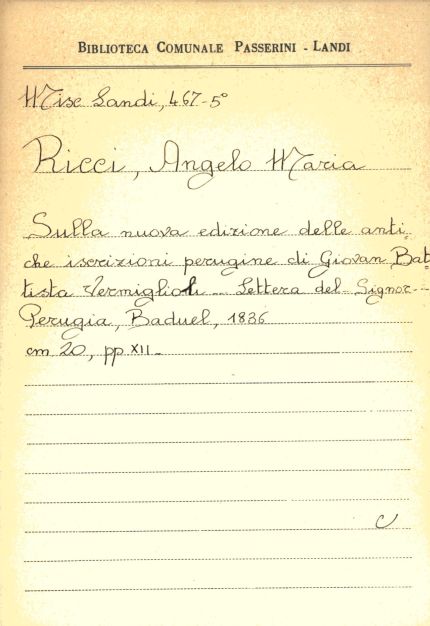 BIBLIOTECA COMUNALE PASSERINI - LANDI
Misc Landi, 467-5°
Ricci, Angelo Maria
Sulla nuova edizione delle anti-
che iscrizioni perugine di Giovan Bat
tista Vermiglioli - Lettera del Signor -
Perugia, Baduel, 1836
cm 20, pp XII -
C